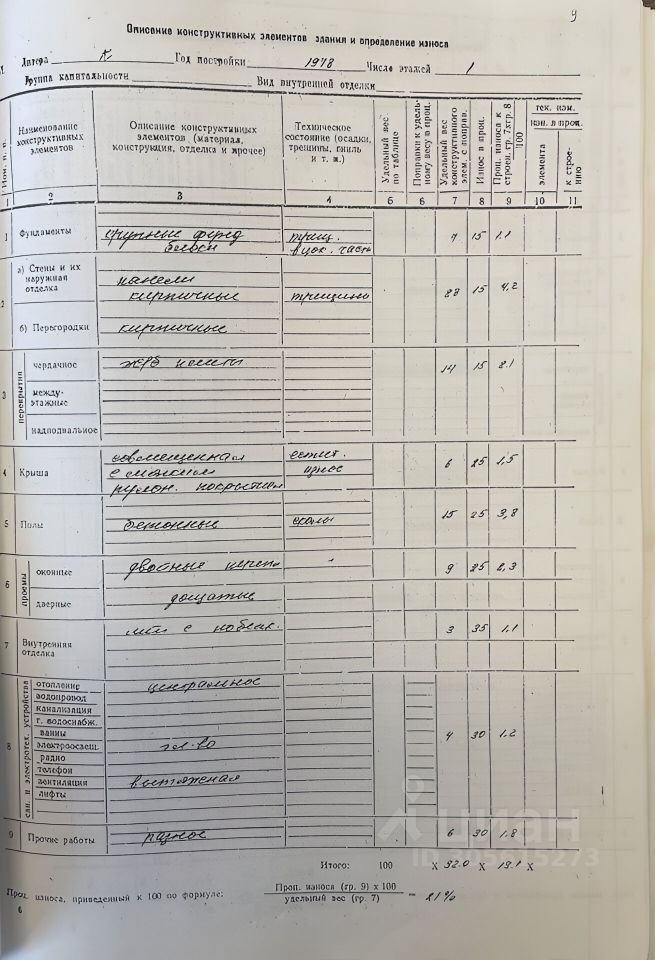 9
Описание конструктивных элементов здания и определение износа
Литера А Год постройки 1978 Число этажей 1
Группа капитальности Вид внутренней отделки
Наименование конструктивных элементов
Описание конструктивных элементов (материал, конструкция, отделка и прочее)
Техническое состояние (осадки, трещины, гниль и т. п.)
Удельный вес по таблице
Поправки к удельному весу в проц.
Удельный вес конструктивного элем. с поправ.
Износ в проц.
Проц. износа к строен. гр. 7хгр. 8 100
тек. изм.
изн. в проц.
элемента
к строению
1 2 3 4 5 6 7 8 9 10 11
1 Фундаменты
блоки в цок. части 7 15 1.1
2 а) Стены и их наружная отделка
панели
кирпичные трещины 28 15 4,2
б) Перегородки кирпичные
3 перекрытия
чердачное ж/б плиты 14 15 2.1
междуэтажные
надподвальное
4 Крыша
совмещенная естест.
с мягким износ 6 25 1,5
рулон. покрытием
5 Полы
бетонные сколы 15 25 3,8
6 проемы
оконные двойные 9 25 2,3
дверные дощатые
7 Внутренняя отделка
с побелк. 3 35 1,1
8 сан. и электротех. устройства
отопление центральное
водопровод
канализация
г. водоснабж.
ванны
электроосвещ. эл-во 4 30 1.2
радио
телефон
вентиляция вытяжная
лифты
9 Прочие работы разное 6 30 1.8
Итого: 100 х 92.0 х 19.1 х
Проц. износа, приведенный к 100 по формуле: Проц. износа (гр. 9) х 100
удельный вес (гр. 7) = 21%
6
циан